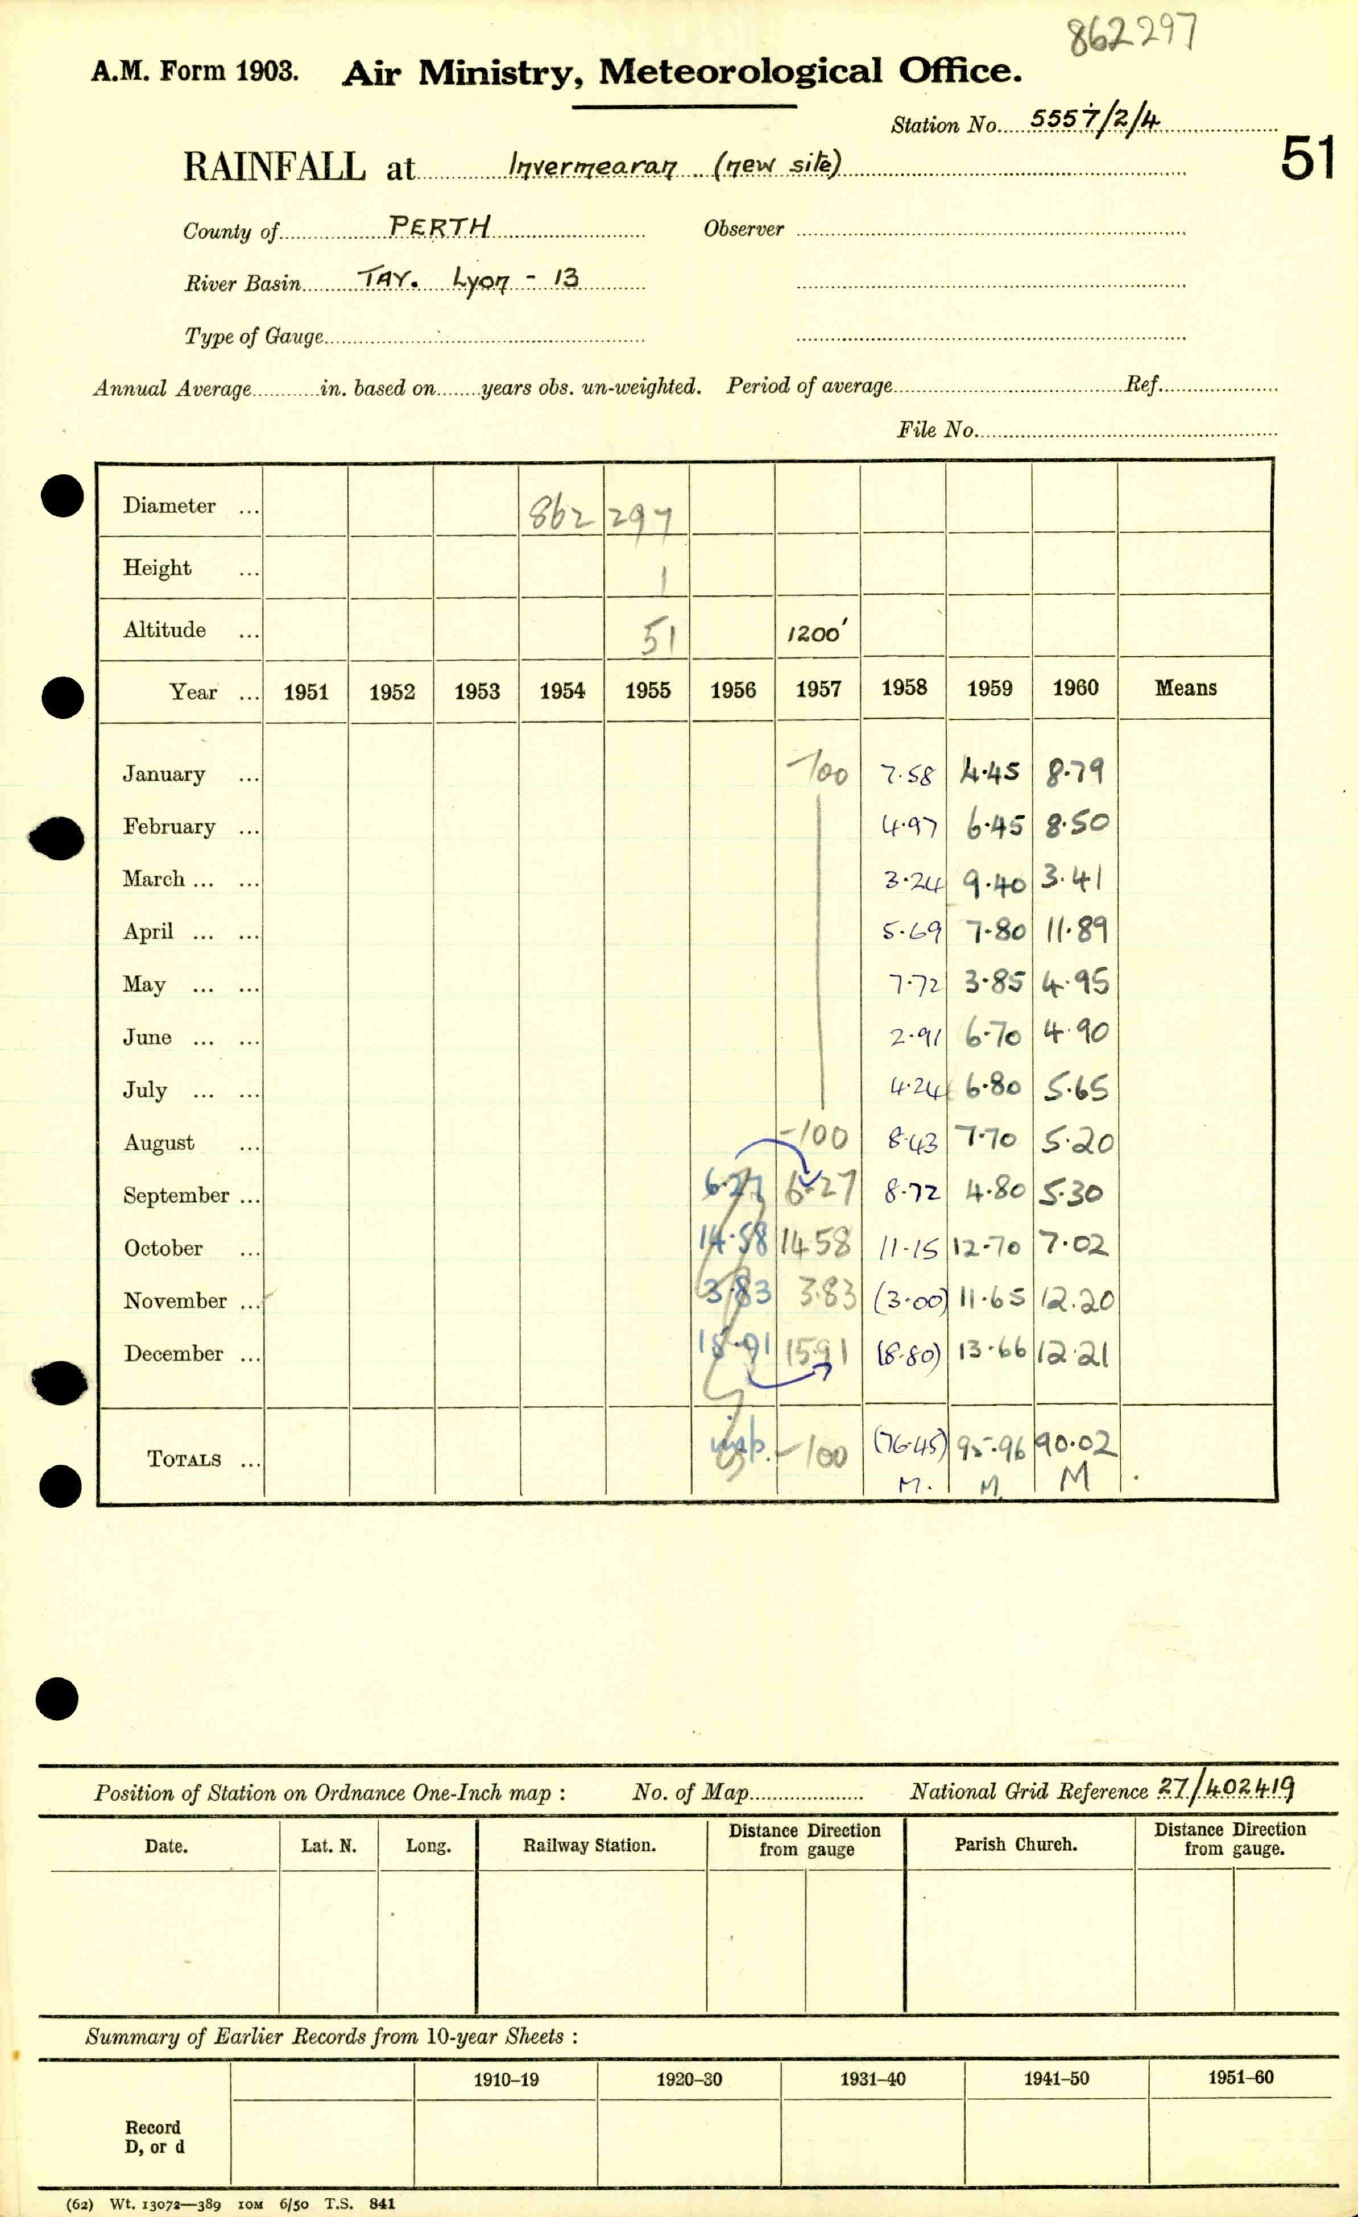 862297
A.M. Form 1903. Air Ministry, Meteorological Office.
Station No. 5557/2/4
51
RAINFALL at Invermearan (new site)
County of PERTH Observer
River Basin TAY. Lyon - 13
Type of Gauge
Annual Average in. based on years obs. un-weighted. Period of average Ref.
File No.
Diameter ... 862 297
Height ... 1
Altitude ... 51 1200'
Year ... 1951 1952 1953 1954 1955 1956 1957 1958 1959 1960 Means
January ... -100 7.58 4.45 8.79
February ... 4.97 6.45 8.50
March ... ... 3.24 9.40 3.41
April ... ... 5.69 7.80 11.89
May ... ... 7.72 3.85 4.95
June ... ... 2.91 6.70 4.90
July ... ... 4.24 6.80 5.65
August ... -100 8.43 7.70 5.20
September ... 6.27 6.27 8.72 4.80 5.30
October ... 14.58 14.58 11.15 12.70 7.02
November ... 3.83 3.83 (3.00) 11.65 12.20
December ... 15.91 15.91 (8.80) 13.66 12.21
TOTALS ... -100 (76.45) 95.96 90.02
M. M. M
Position of Station on Ordnance One-Inch map : No. of Map National Grid Reference 27/402419
Date. Lat. N. Long. Railway Station. Distance Direction from gauge Parish Church. Distance Direction from gauge.
Summary of Earlier Records from 10-year Sheets :
1910–19 1920–30 1931–40 1941–50 1951–60
Record
D, or d
(62) Wt. 13072—389 10M 6/50 T.S. 841